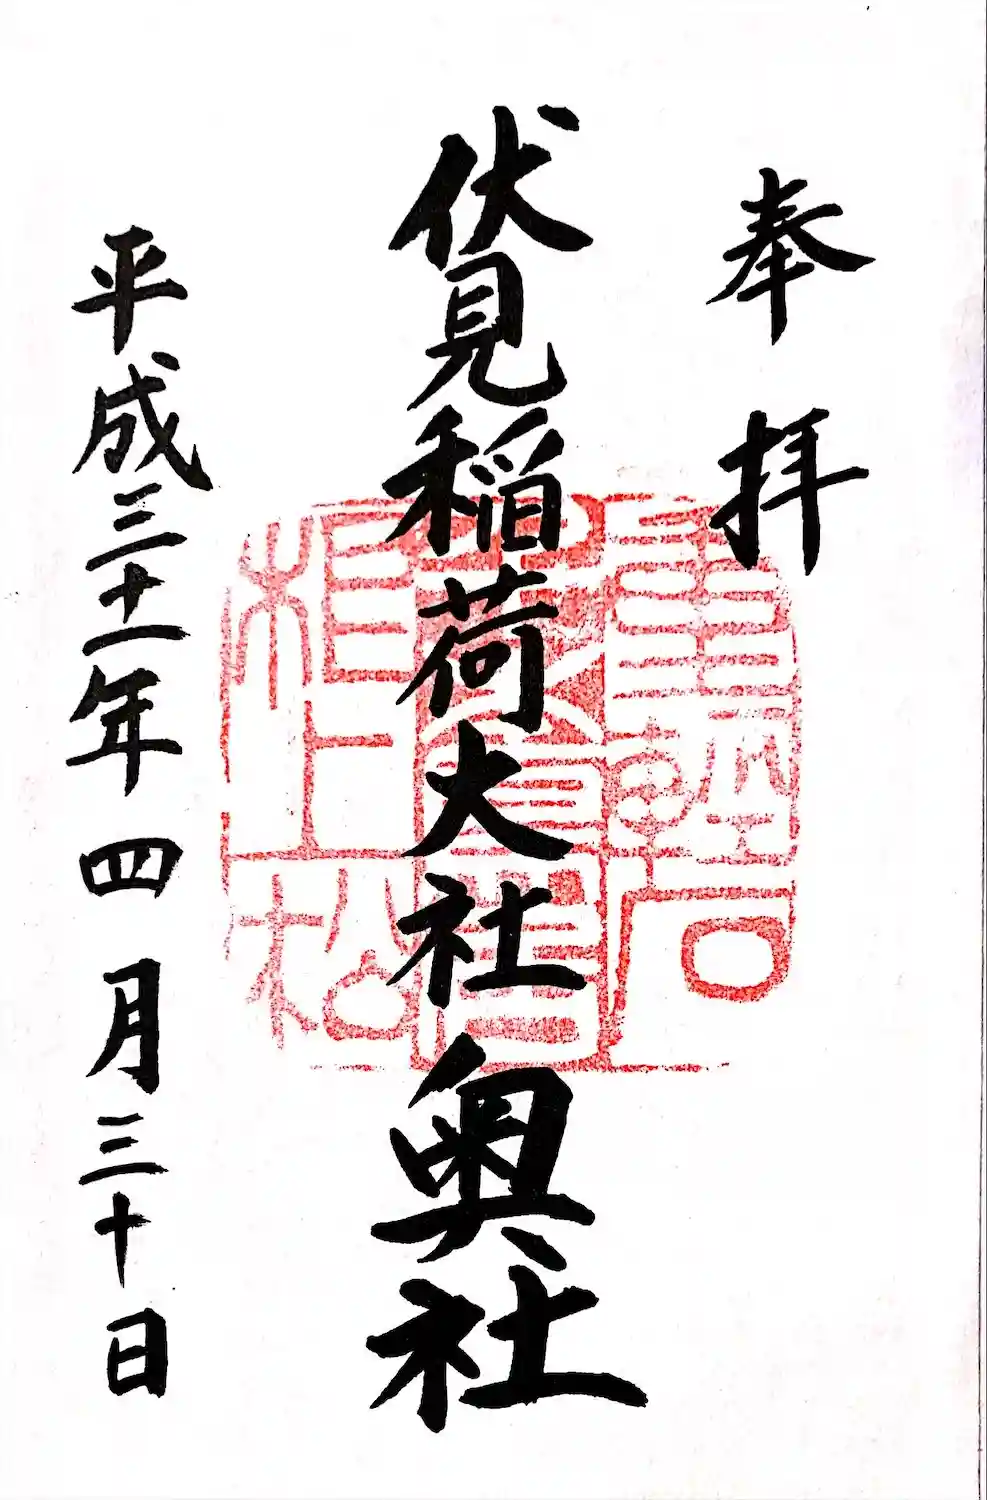 奉拝
伏見稲荷大社奥社
平成三十一年四月三十日